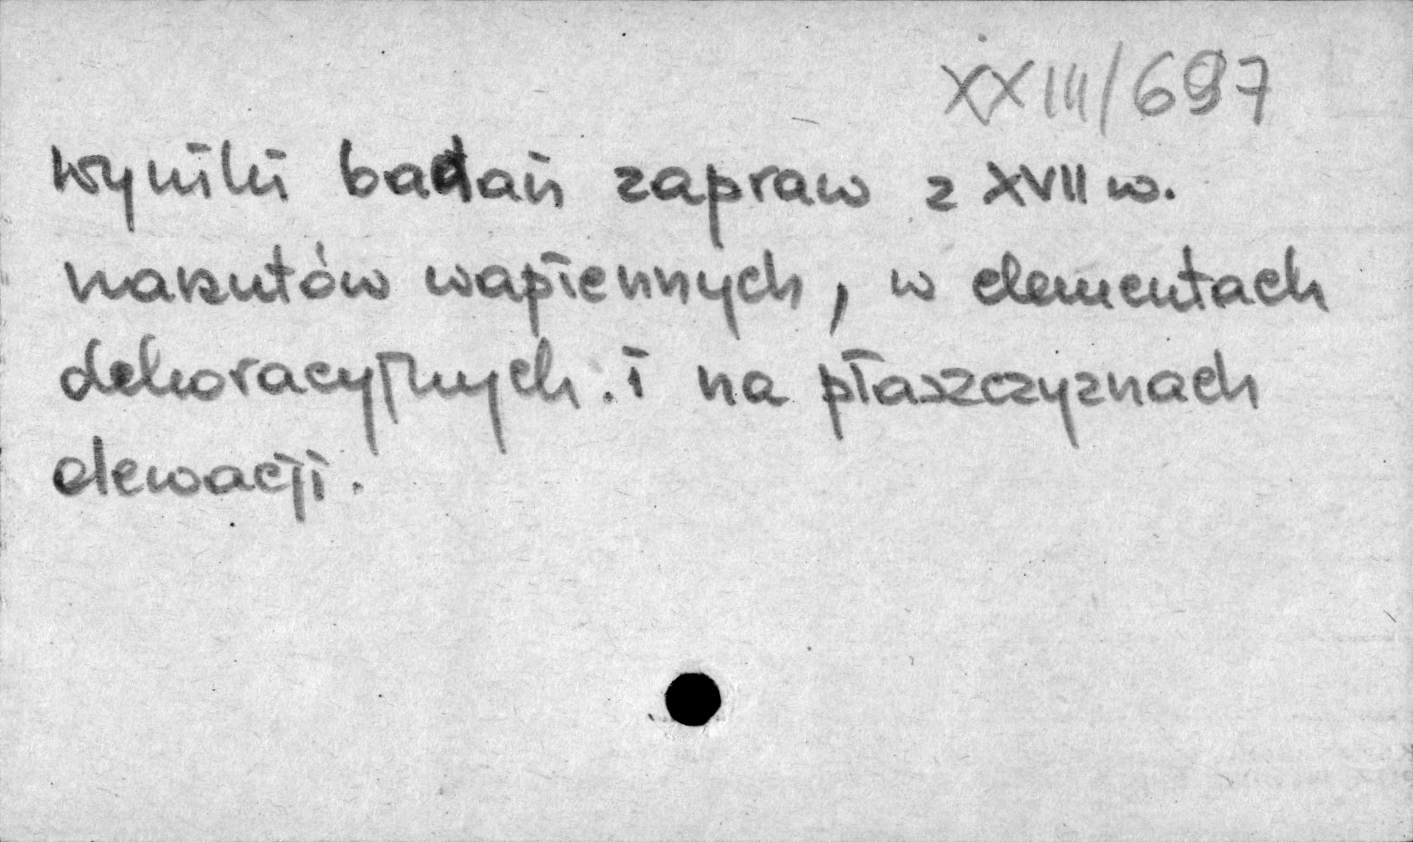 XXIII/697
wyniki badań zapraw z XVII w.
narzutów wapiennych, w elementach
dekoracyjnych. i na płaszczyznach
elewacji.